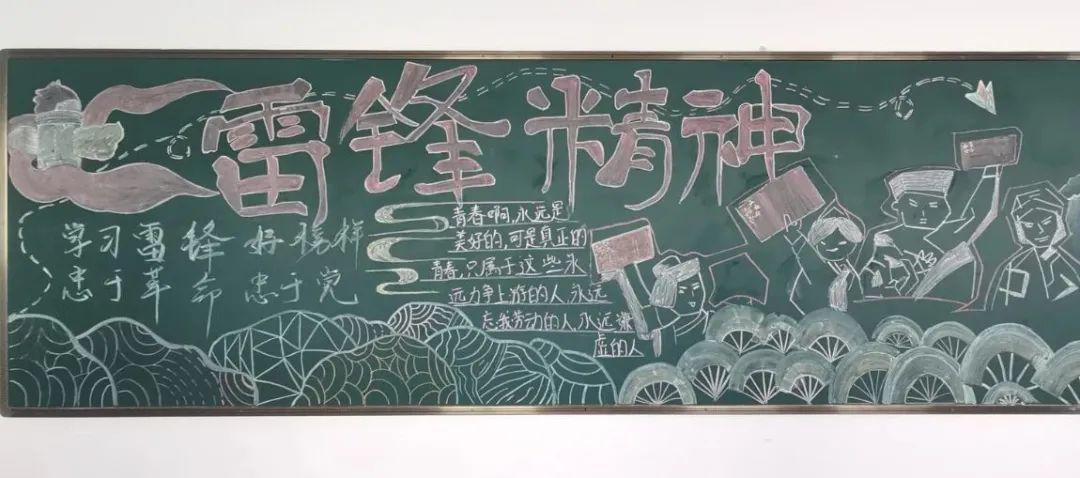 雷锋精神
学习雷锋好榜样
忠于革命 忠于党
青春啊,永远是
美好的,可是真正的
青春,只属于这些永
远力争上游的人,永远
忘我劳动的人,永远谦
虚的人